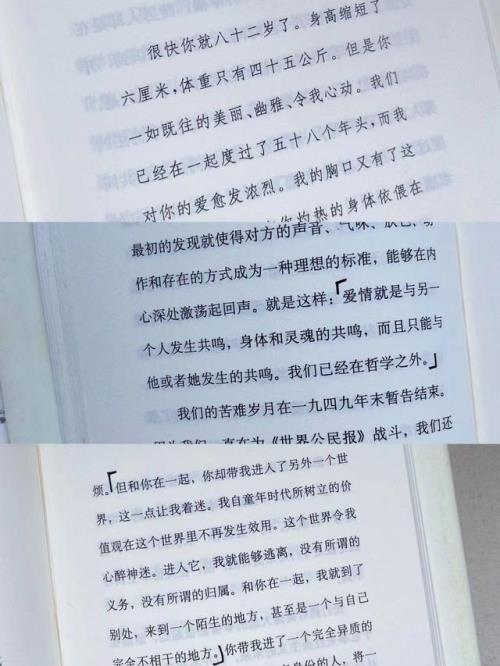 很快你就八十二岁了。身高缩短了
六厘米，体重只有四十五公斤。但是你
一如既往的美丽、幽雅、令我心动。我们
已经在一起度过了五十八个年头，而我
对你的爱愈发浓烈。我的胸口又有了这
你灼热的身体依偎在
最初的发现就使得对方的声音、气味、
作和存在的方式成为一种理想的标准，能够在内
心深处激荡起回声。就是这样：「爱情就是与另一
个人发生共鸣，身体和灵魂的共鸣，而且只能与
他或者她发生的共鸣。我们已经在哲学之外。」
我们的苦难岁月在一九四九年末暂告结束。
因为我们一直在为《世界公民报》战斗，我们还
烦。「但和你在一起，你却带我进入了另外一个世
界，这一点让我着迷。我自童年时代所树立的价
值观在这个世界里不再发生效用。这个世界令我
心醉神迷。进入它，我就能够逃离，没有所谓的
义务，没有所谓的归属。和你在一起，我就到了
别处，来到一个陌生的地方，甚至是一个与自己
完全不相干的地方。」你带我进了一个完全异质的
身份的人，将一